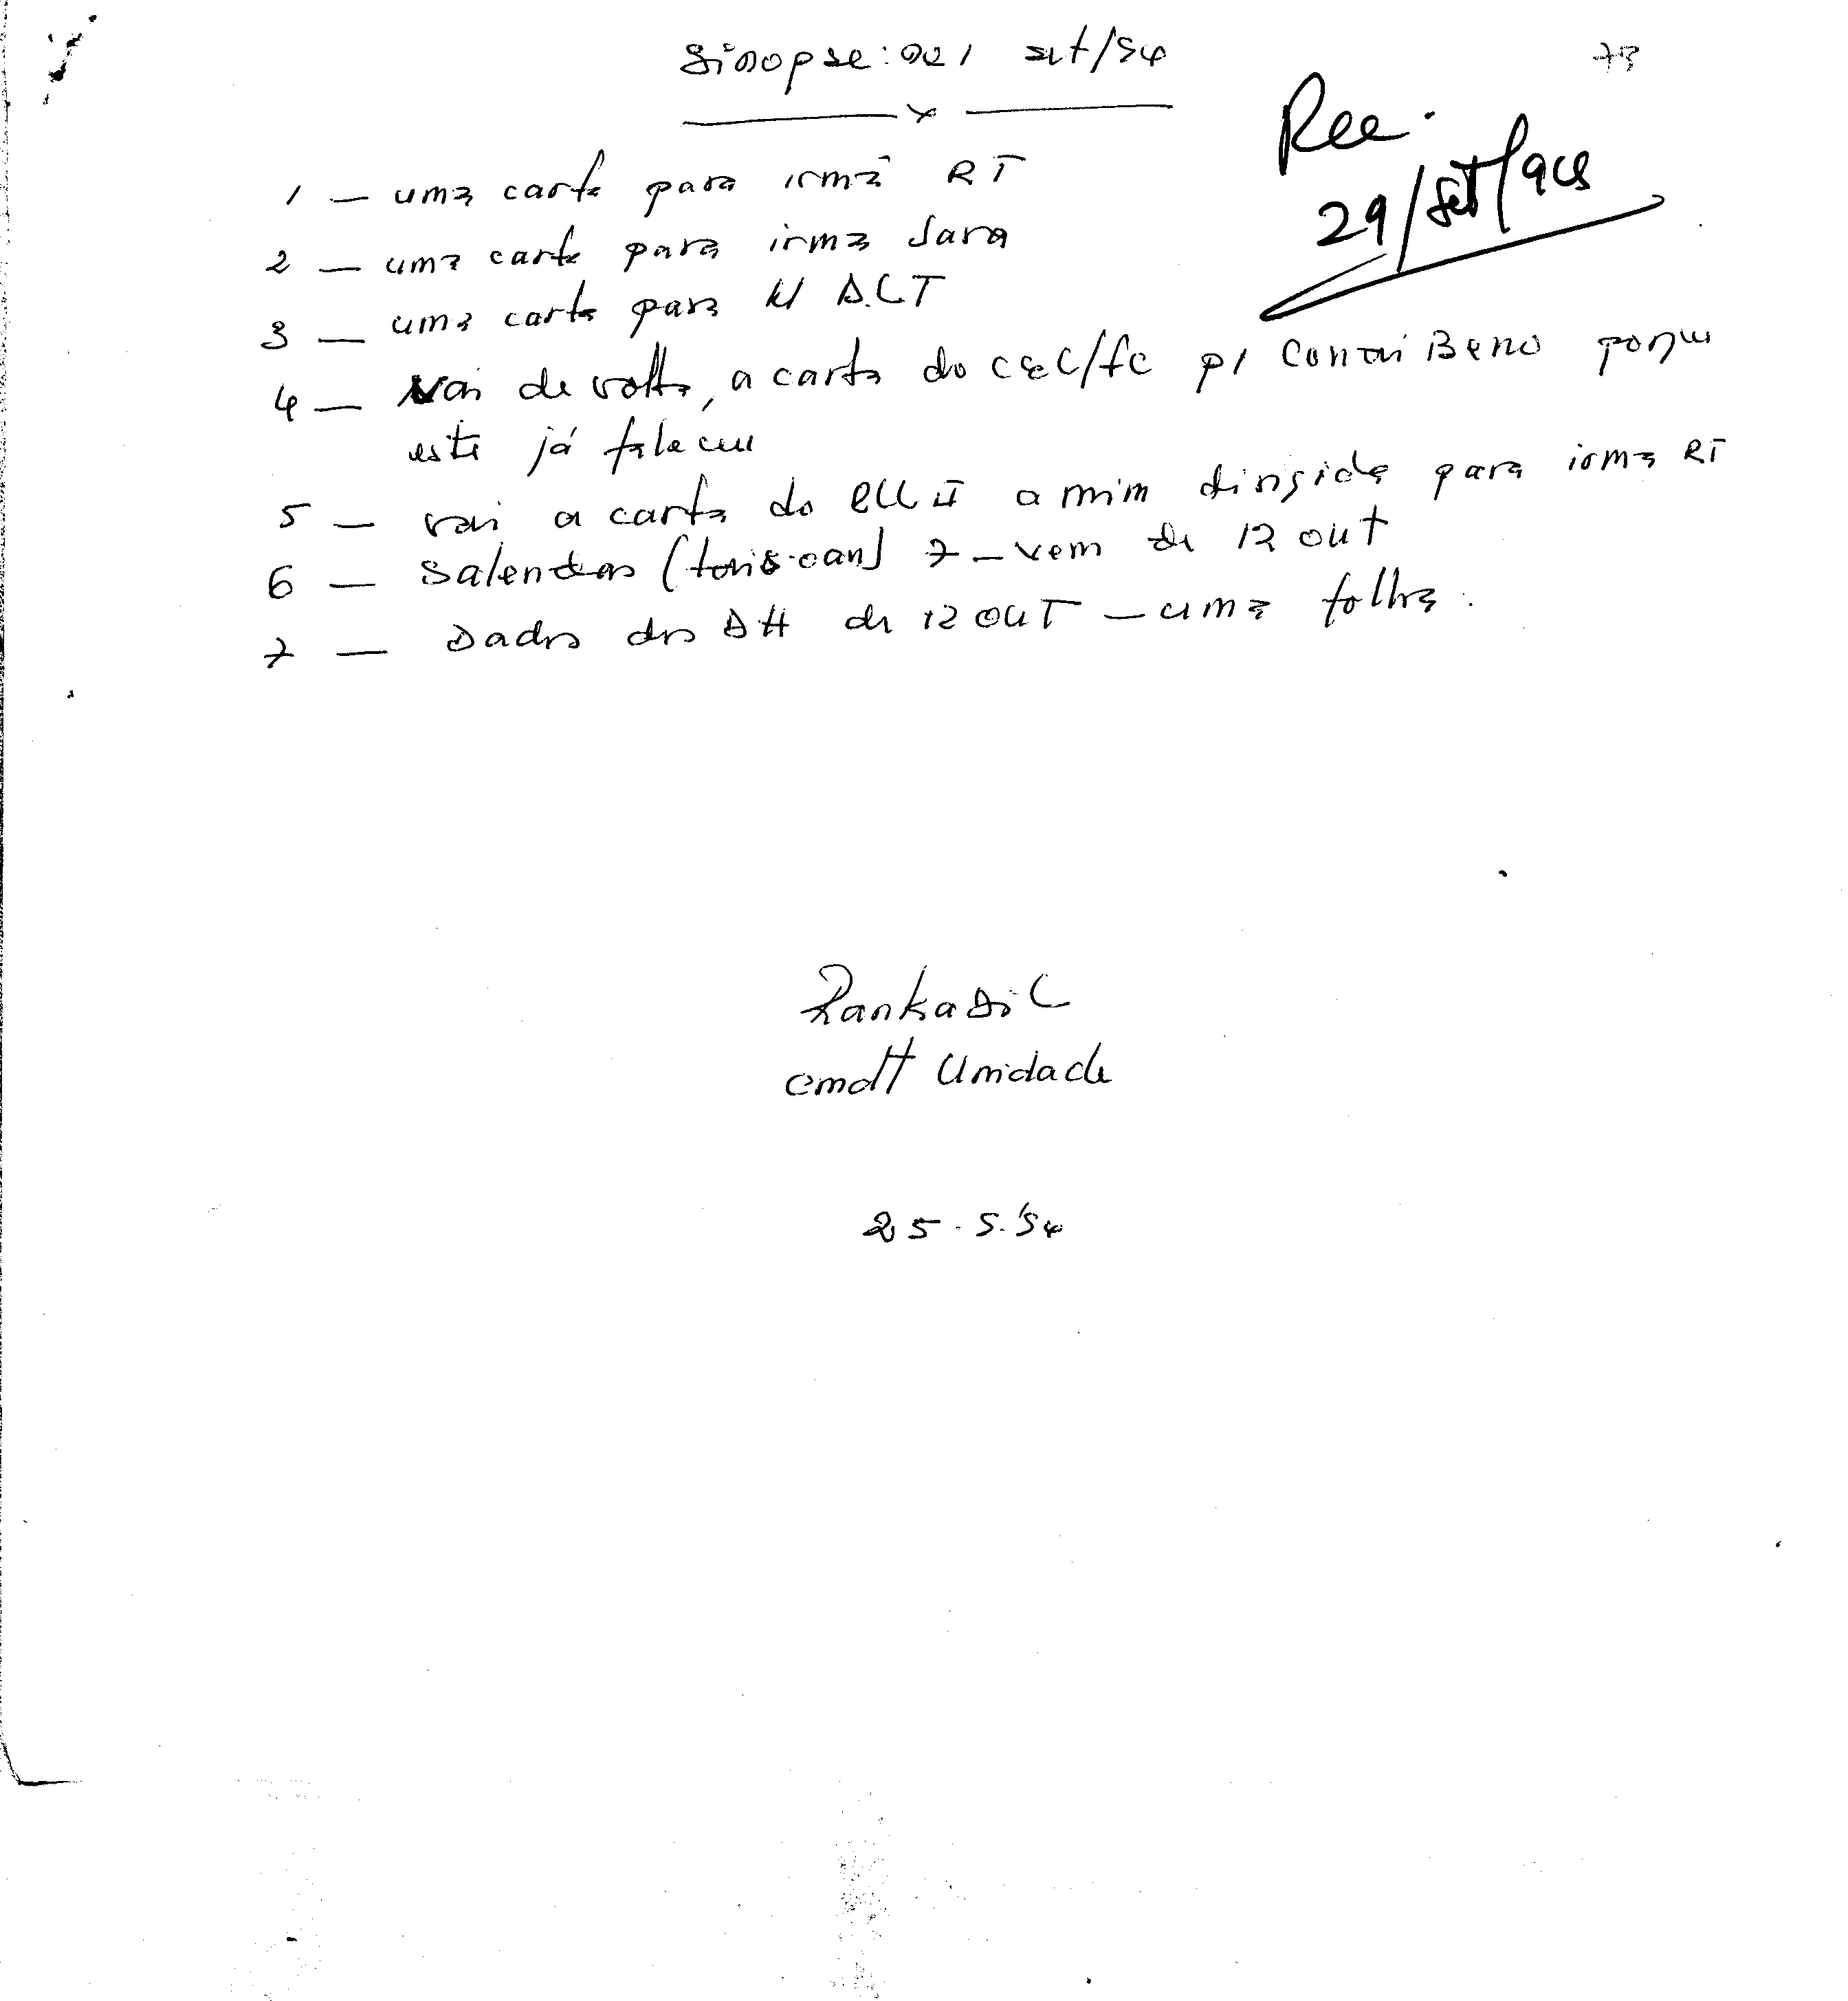 Sinopse: 021 set/94
73
Rec.
29/set/94
1 — uma carta para irmã RT
2 — uma carta para irmã Sara
3 — uma carta para A.C.T
4 — Vai de volta, a carta do p/ Beno porque
este já faleceu
5 — vai a carta do a mim dirigida para irmã RT
6 — 7 — vem de 12 out
7 — Dados dos AH de 12 OUT — uma folha.
cmdt Unidade
25.9.'94